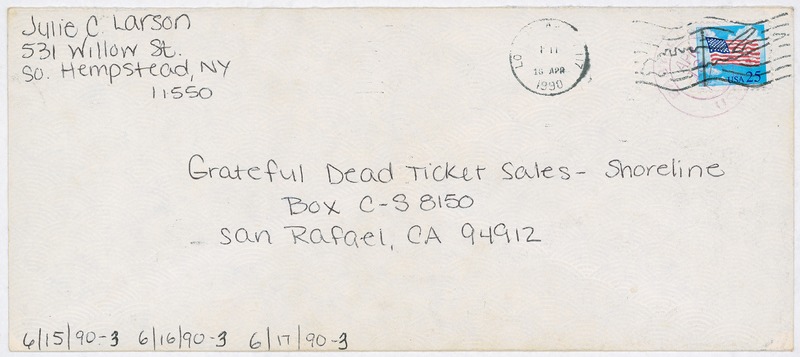 Julie C. Larson
531 Willow St.
So. Hempstead, NY
11550
18 APR
1990
USA 25
Grateful Dead Ticket Sales - Shoreline
Box C-S 8150
San Rafael, CA 94912
6/15/90-3 6/16/90-3 6/17/90-3